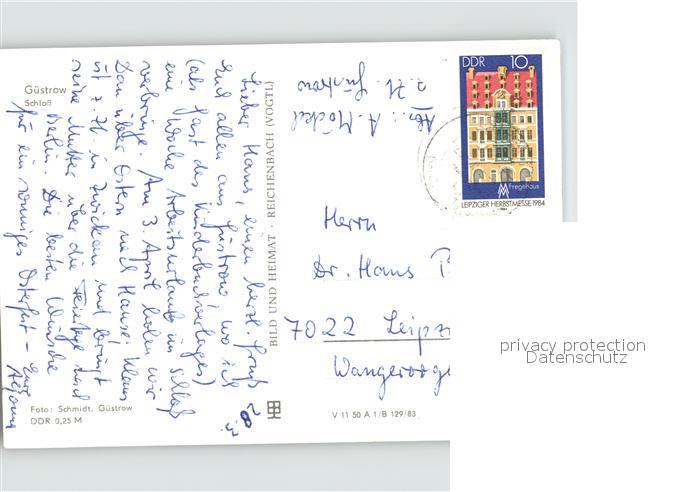 Güstrow
Schloß
Lieber Hans, einen herzl. Gruß
Euch allen aus Güstrow, wo ich
(als Gast des Kinderbuchverlages)
eine Woche Arbeitsurlaub im Schloß
verbringe. Am 3. April holen wir
Dan über Ostern nach Hause; Klaus
ist z. Zt. in Zwickau und bringt
seine Mutter über die Feiertage nach
Berlin. Die besten Wünsche
für ein sonniges Osterfest – Eure
28.3.
Foto: Schmidt, Güstrow
DDR 0,25 M
BILD UND HEIMAT · REICHENBACH (VOGTL)
V 11 50 A 1/B 129/83
Abs.: A. Möckel
z. Zt. Güstrow
DDR 10
Fregehaus
LEIPZIGER HERBSTMESSE 1984
Herrn
Dr. Hans
7022 Leipz
Wangerooge
privacy protection
Datenschutz